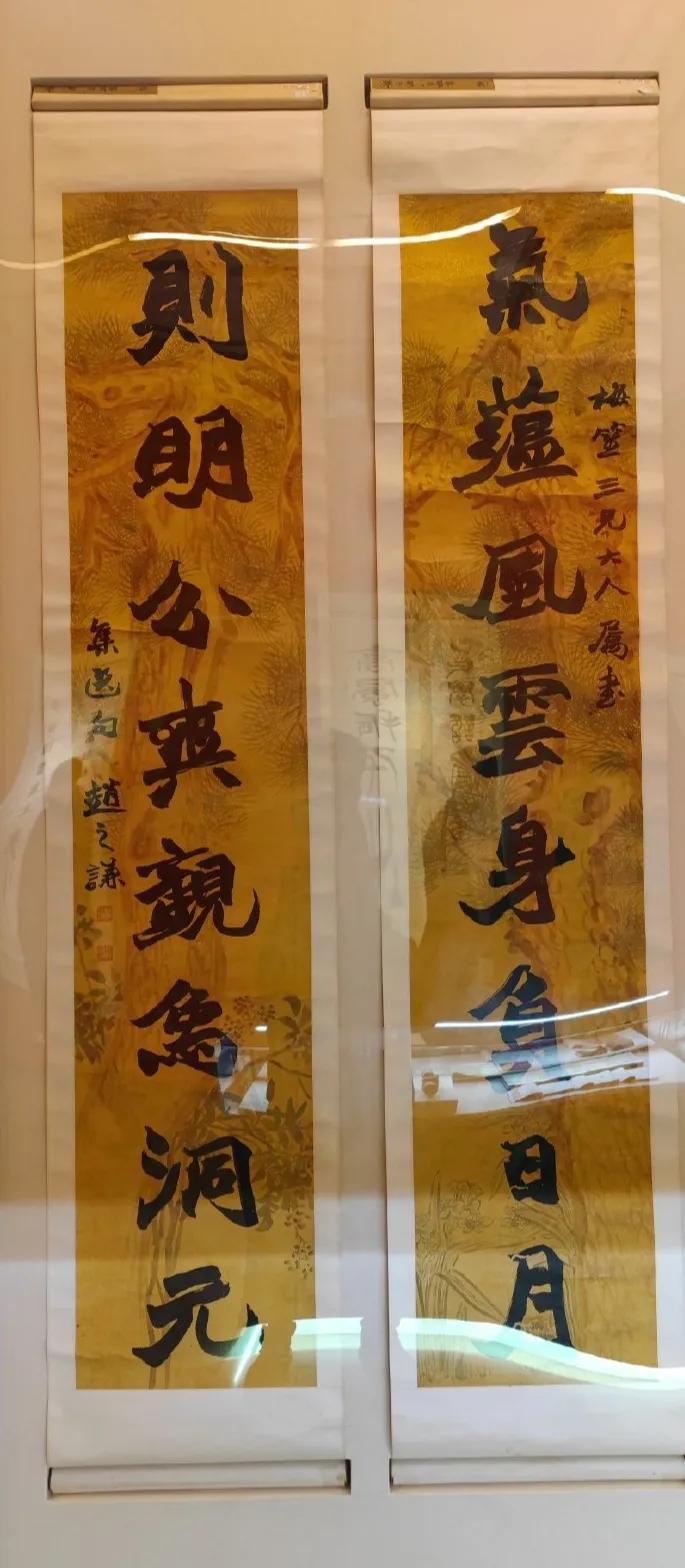 梅盦三兄大人属書
氣蘊風雲身負日月
則明分爽觀象洞元
集選句 趙之謙